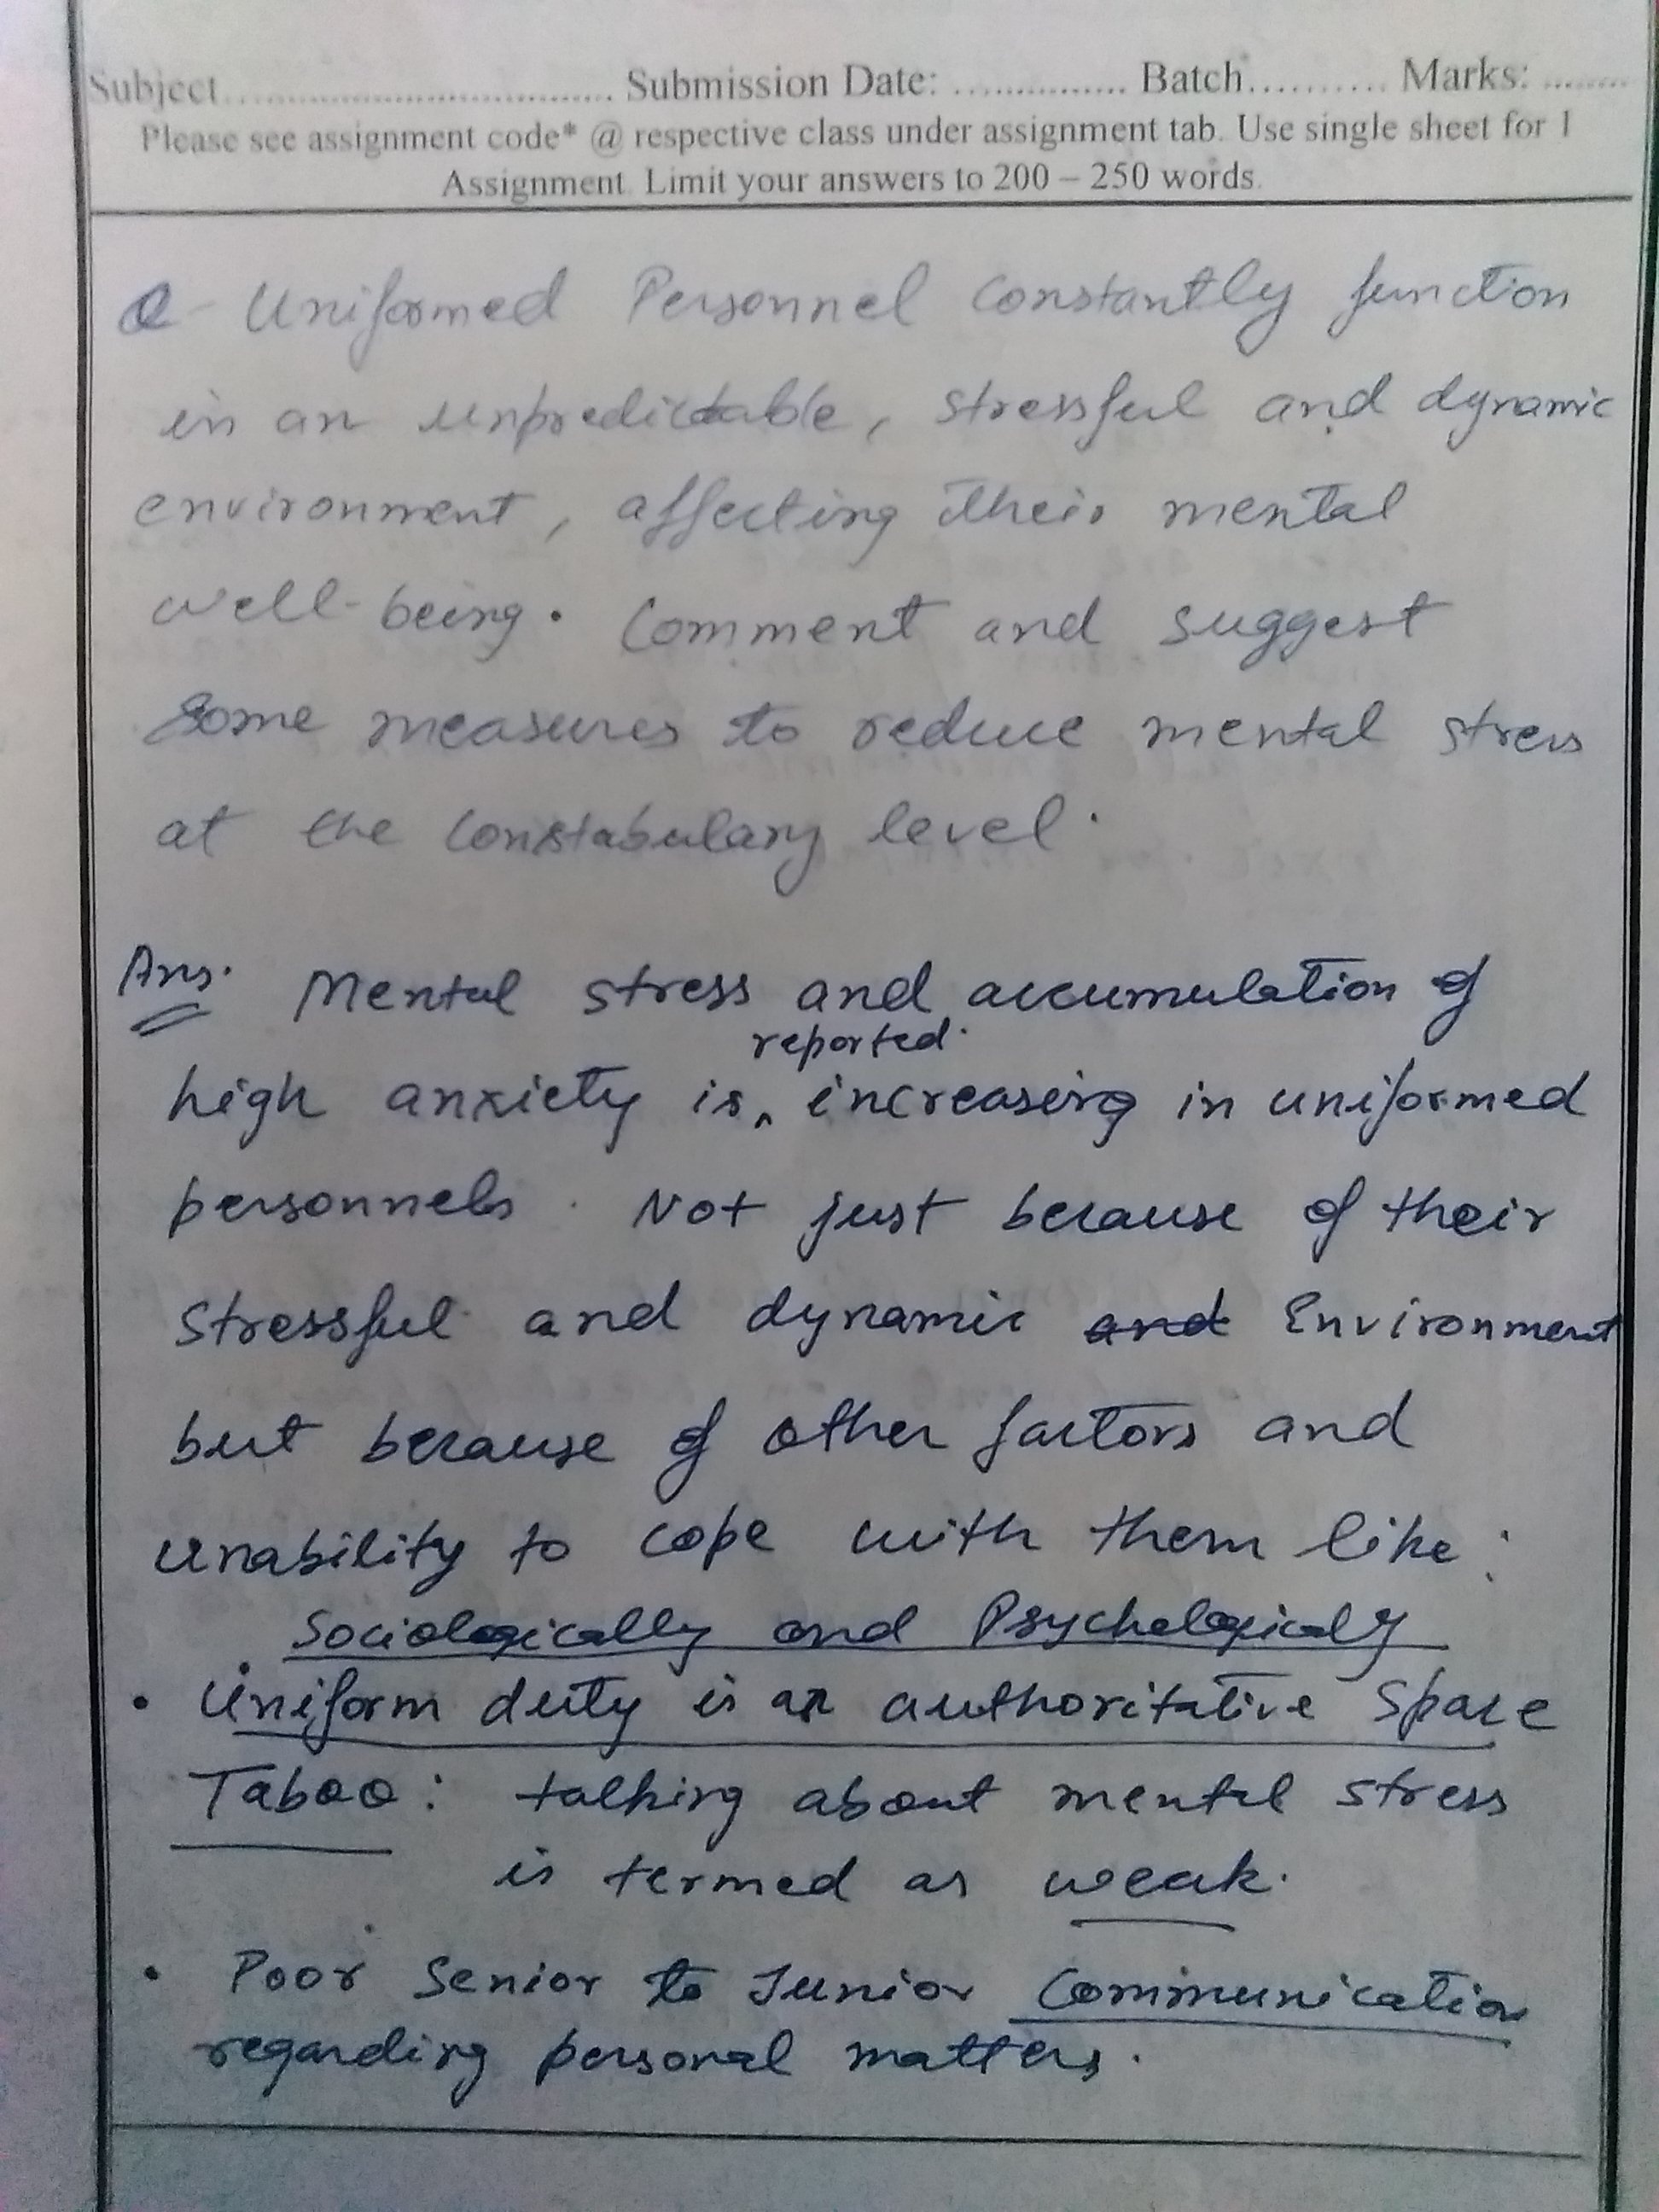 Subject.................................... Submission Date: ................ Batch.......... Marks: ........
Please see assignment code* @ respective class under assignment tab. Use single sheet for 1
Assignment. Limit your answers to 200 – 250 words.
Q- Uniformed Personnel Constantly function
in an unpredictable, stressful and dynamic
environment, affecting their mental
well-being. Comment and suggest
some measures to reduce mental stress
at the constabulary level.
Ans. Mental stress and accumulation of
reported
high anxiety is ^ increasing in uniformed
personnels. Not just because of their
Stressful and dynamic and Environment
but because of other factors and
unability to cope with them like:
Sociologically and Psychologically
• Uniform duty is an authoritative space
Taboo: talking about mental stress
is termed as weak.
• Poor Senior to Junior Communication
regarding personal matters.